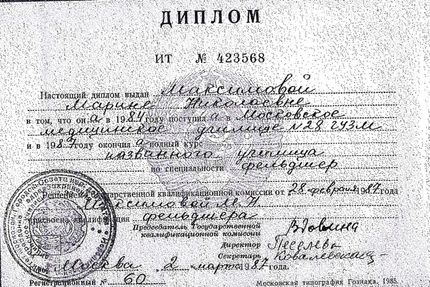 ДИПЛОМ
ИТ № 423568
Настоящий диплом выдан Максимовой
Марине Николаевне
в том, что он а в 1984 году поступил а в Московское
медицинское училище №28 ГУЗМ
и в 1987 окончил а полный курс
названного училища
по специальности фельдшер
Решением Государственной квалификационной комиссии от 28 февраля 1987 года
Максимовой М.Н.
присвоена квалификация фельдшера
Председатель Государственной
квалификационной комиссии
Директор
Секретарь
Москва 2 марта 1987 г.
Регистрационный № 60
Московская типография Гознака. 1985.